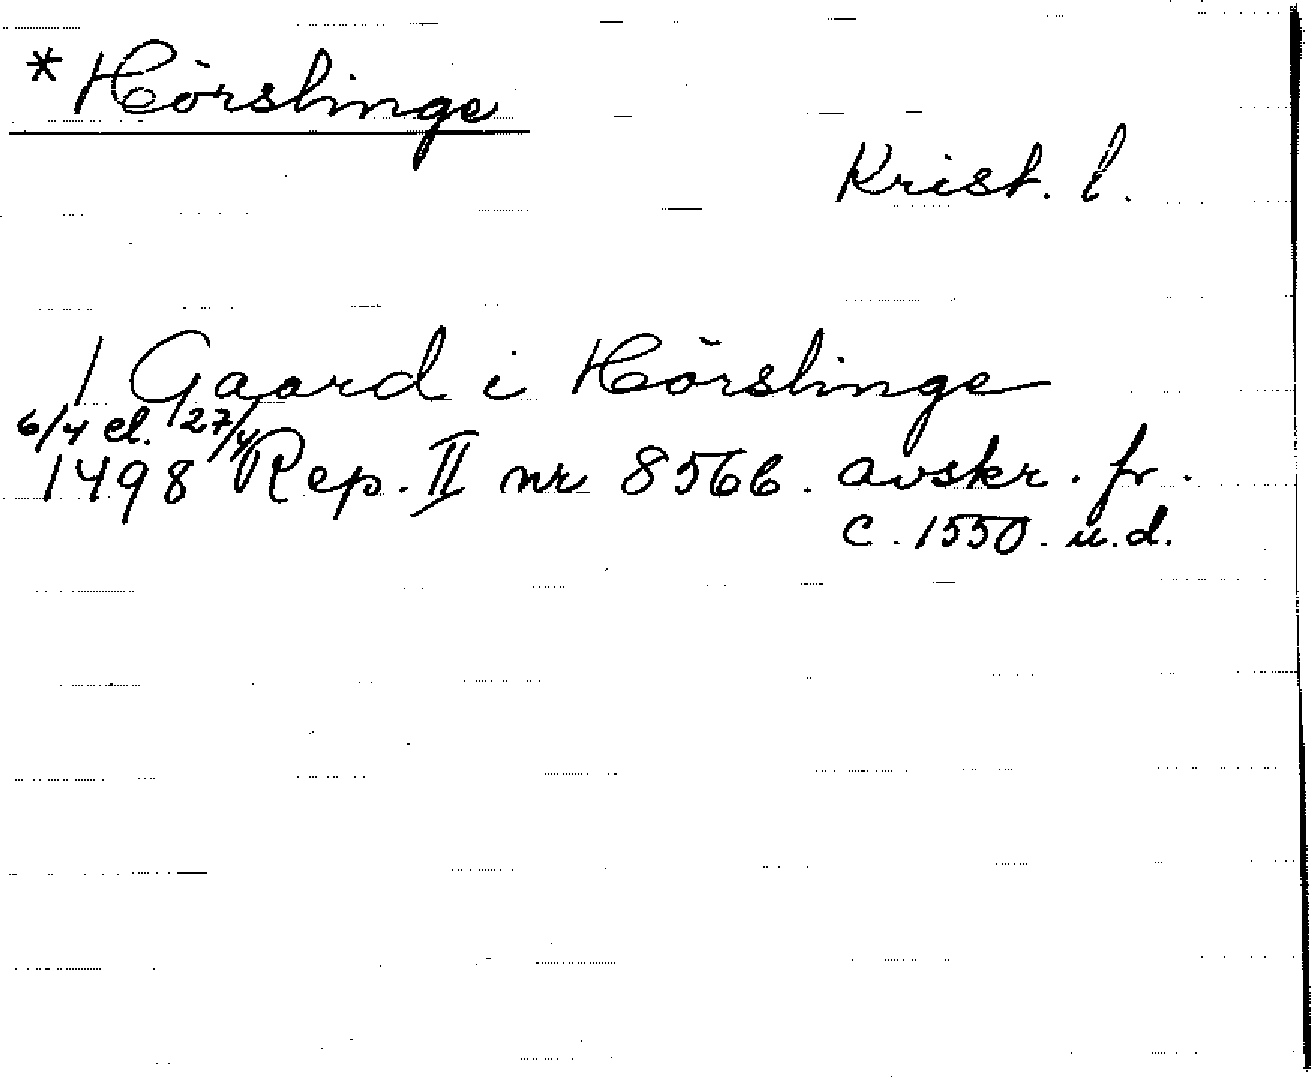 *Hörslinge
Krist. l.
1 Gaard i Hörslinge
6/4 el. 27/4
1498 Rep. II nr 8566. avskr. fr.
c. 1550. u.d.